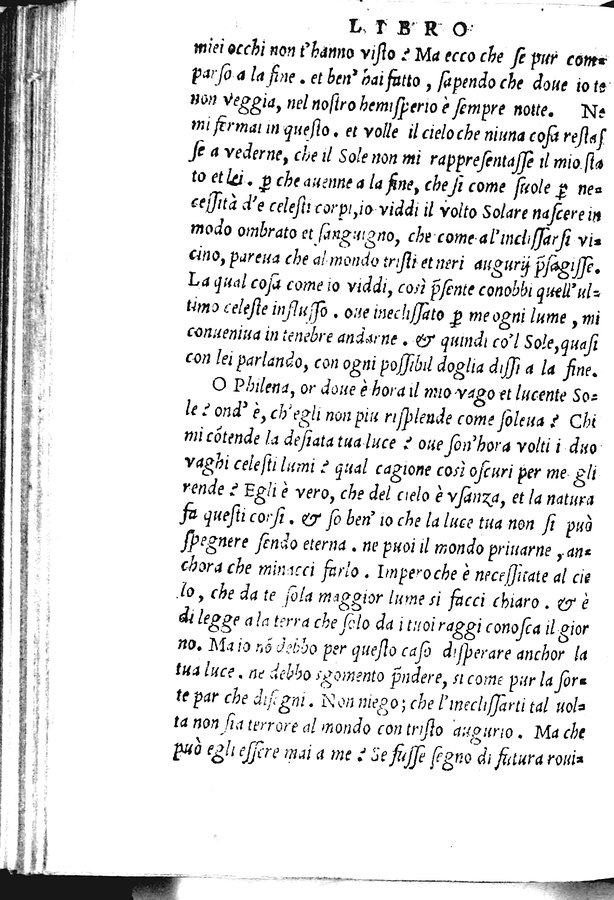 LIBRO
miei occhi non t'hanno visto ? Ma ecco che se pur com-
parso a la fine . et ben' hai fatto , sapendo che doue io te
non veggia, nel nostro hemisperio è sempre notte. Ne
mi fermai in questo . et volle il cielo che niuna cosa restas
se a vederne, che il Sole non mi rappresentasse il mio sta
to et lei . p̱ che auenne a la fine, che si come suole p̱ ne-
cessità d'e celesti corpi, io viddi il volto Solare nascere in
modo ombrato et sanguigno, che come al'inclissarsi vi-
cino, pareua che al mondo tristi et neri augurij p̃sagisse.
La qual cosa come io viddi, così p̃sente conobbi quell'ul-
timo celeste influsso . oue ineclissato p̱ me ogni lume , mi
conueniua in tenebre andarne . & quindi co'l Sole, quasi
con lei parlando, con ogni possibil doglia dissi a la fine.
O Philena, or doue è hora il mio vago et lucente So-
le ? ond' è, ch'egli non piu risplende come soleua ? Chi
mi cõtende la desiata tua luce ? oue son'hora volti i duo
vaghi celesti lumi ? qual cagione così oscuri per me gli
rende ? Egli è vero, che del cielo è vsanza, et la natura
fa questi corsi . & so ben' io che la luce tua non si può
spegnere sendo eterna . ne puoi il mondo priuarne , an-
chora che minacci farlo . Imperoche è necessitate al cie
lo, che da te sola maggior lume si facci chiaro . & è
di legge a la terra che solo da i tuoi raggi conosca il gior
no. Ma io nõ debbo per questo caso disperare anchor la
tua luce . ne debbo sgomento p̃ndere, si come par la sor-
te par che disegni . Non niego; che l'ineclissarti tal uol-
ta non sia terrore al mondo con tristo augurio . Ma che
può egli essere mai a me ? Se fusse segno di futura roui-